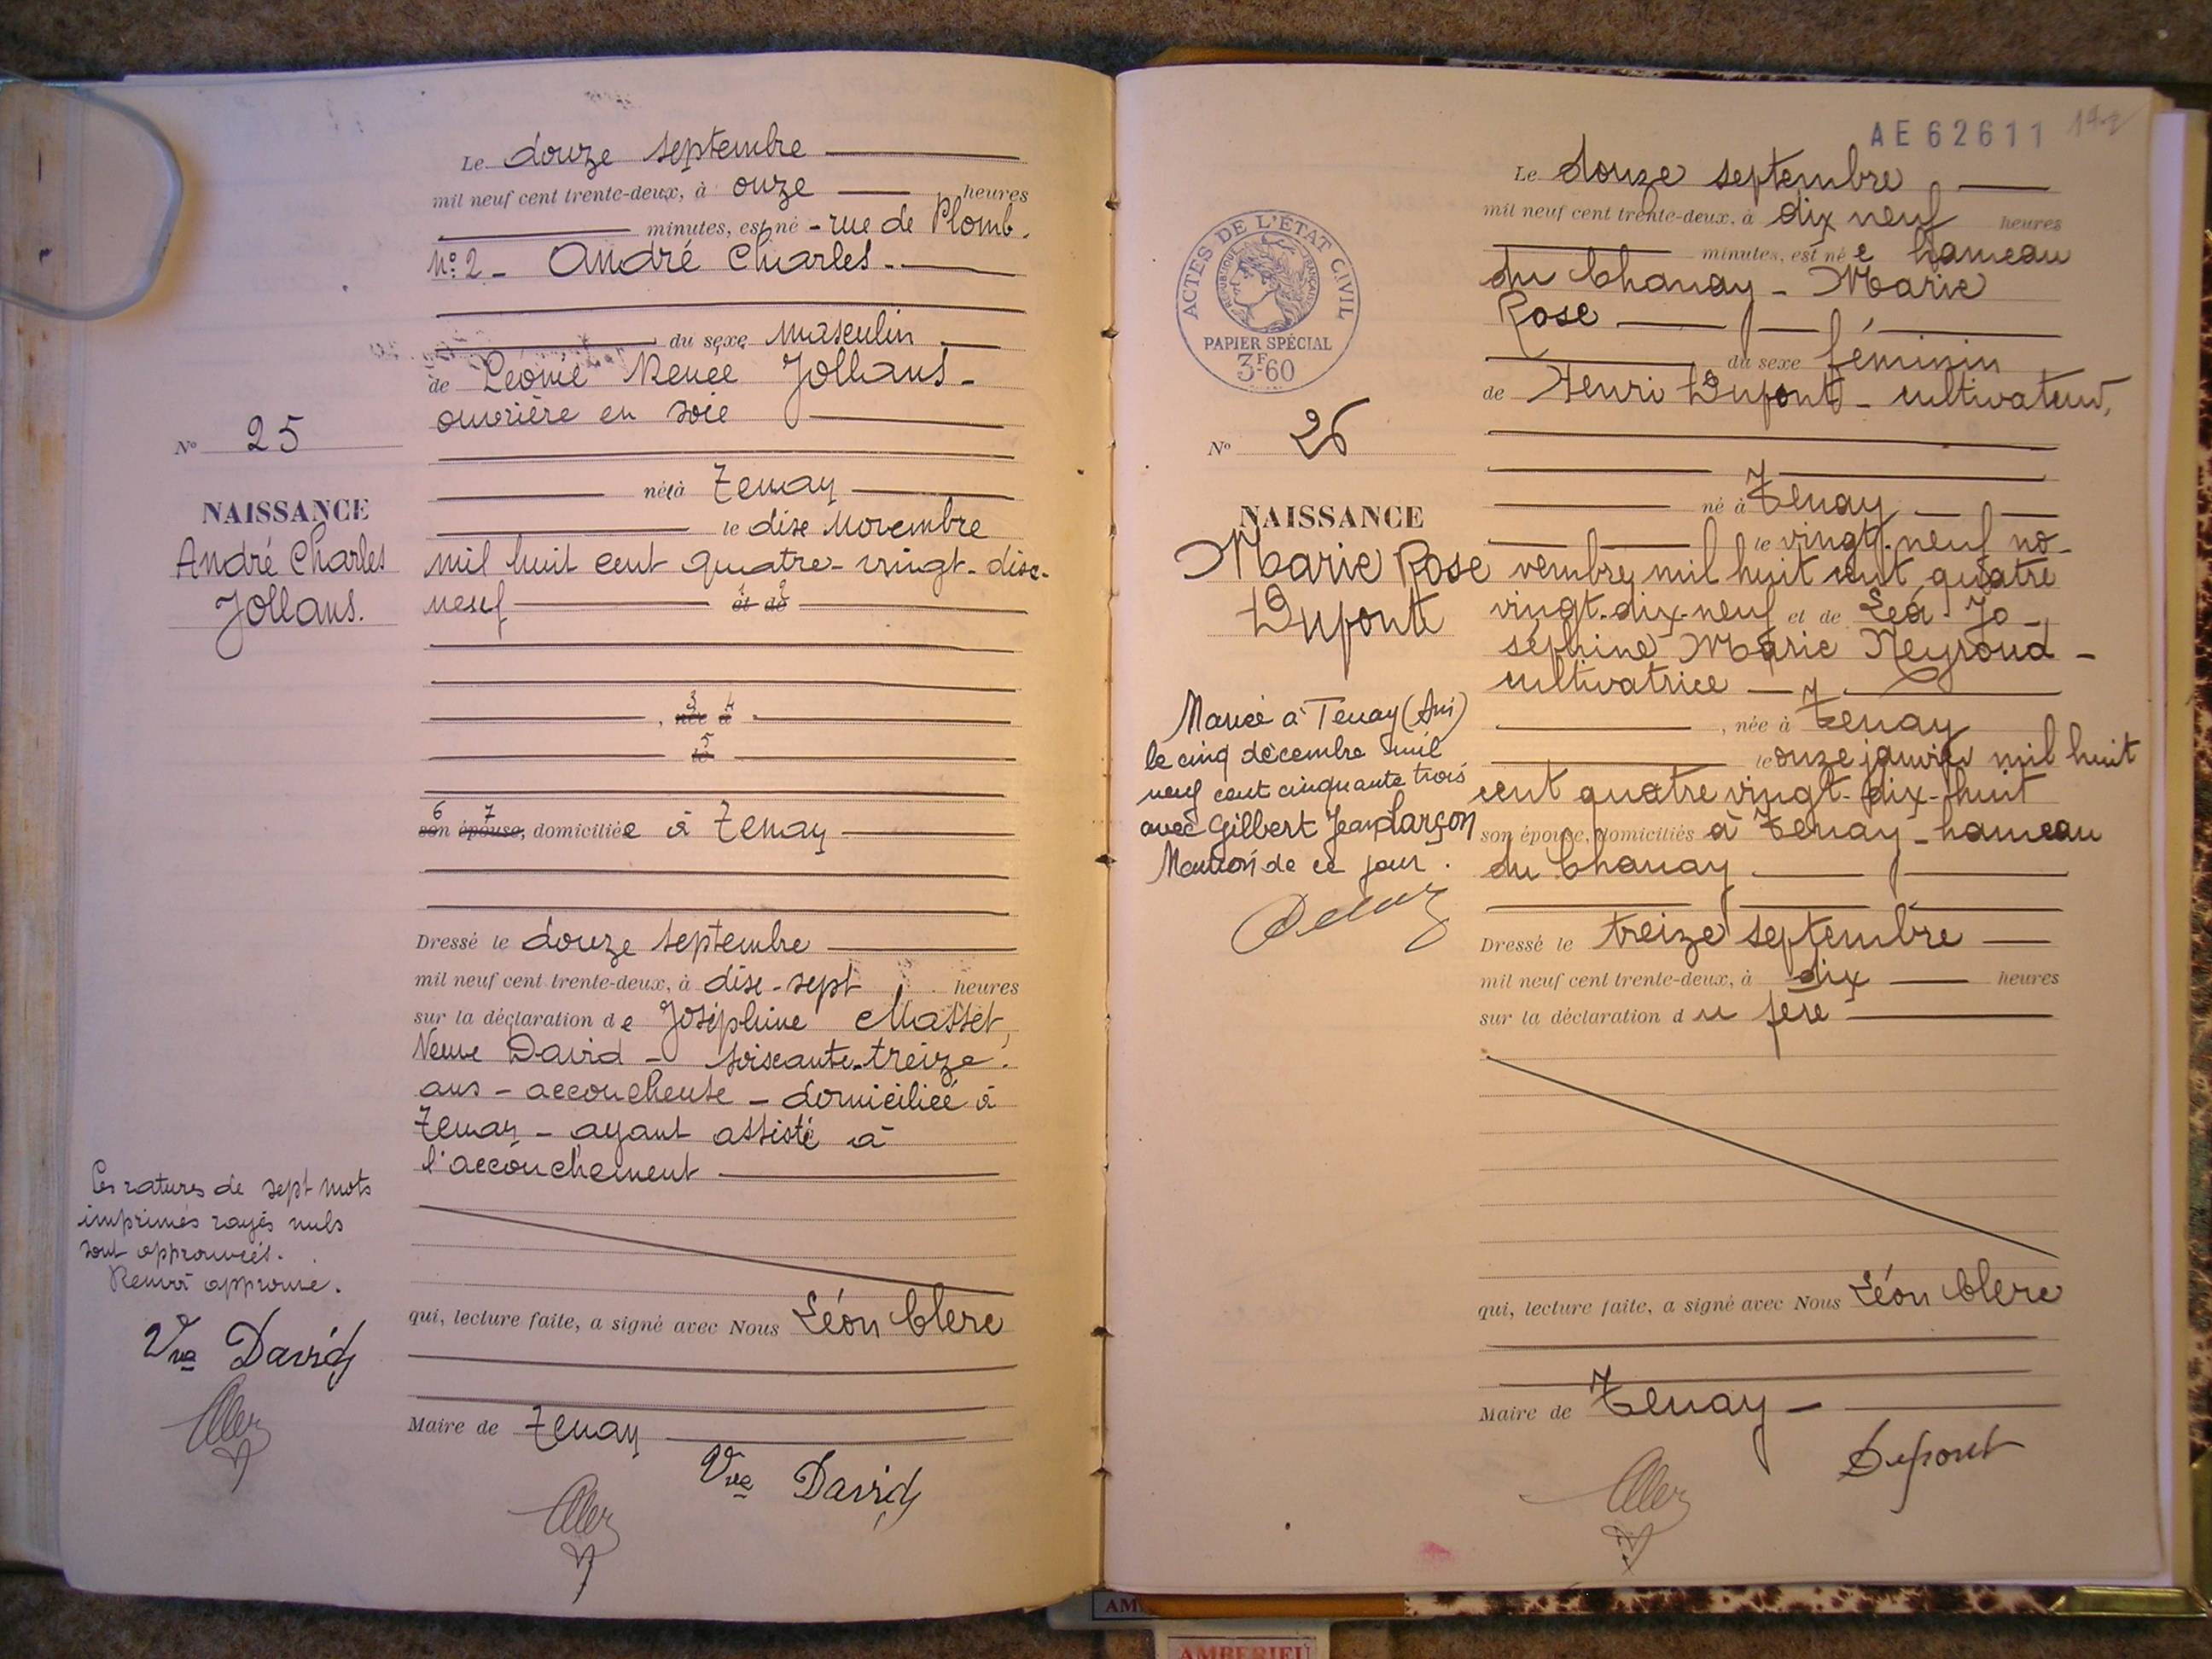 Le douze septembre
mil neuf cent trente-deux, à onze heures
minutes, est né - rue de Plomb.
N° 2 - André Charles -
du sexe masculin
de Léonie Renée Jollans -
ouvrière en soie
née à Tenay
le dix novembre
mil huit cent quatre-vingt-dix-
neuf et de
1 2
née à
3 4
le
5
6 7
son épouse, domiciliée à Tenay
Dressé le douze septembre
mil neuf cent trente-deux, à dix-sept heures
sur la déclaration de Joséphine Masset,
Veuve David - soixante-treize
ans - accoucheuse - domiciliée à
Tenay - ayant assisté à
l'accouchement
qui, lecture faite, a signé avec Nous Léon Clerc
Maire de Tenay
Vve David
N° 25
NAISSANCE
André Charles
Jollans.
Les ratures de sept mots
imprimés rayés nuls
sont approuvées.
Renvoi approuvé.
Vve David
AE 62611
ACTES DE L'ÉTAT CIVIL
RÉPUBLIQUE FRANÇAISE
PAPIER SPÉCIAL
3F60
N° 26
NAISSANCE
Marie Rose
Dupont
Mariée à Tenay (Ain)
le cinq décembre mil
neuf cent cinquante trois
avec Gilbert Jean Larçon
Mention de ce jour.
Le douze septembre
mil neuf cent trente-deux, à dix neuf heures
minutes, est née hameau
du Chanay - Marie
Rose
du sexe féminin
de Henri Dupont - cultivateur,
né à Tenay
le vingt-neuf no-
vembre mil huit cent quatre
vingt-dix-neuf et de Léa Jo-
séphine Marie Neyroud -
cultivatrice
, née à Tenay
le onze janvier mil huit
cent quatre vingt-dix-huit
son épouse, domiciliés à Tenay - hameau
du Chanay
Dressé le treize septembre
mil neuf cent trente-deux, à dix heures
sur la déclaration du père
qui, lecture faite, a signé avec Nous Léon Clerc
Maire de Tenay -
Dupont
AMBERIEU